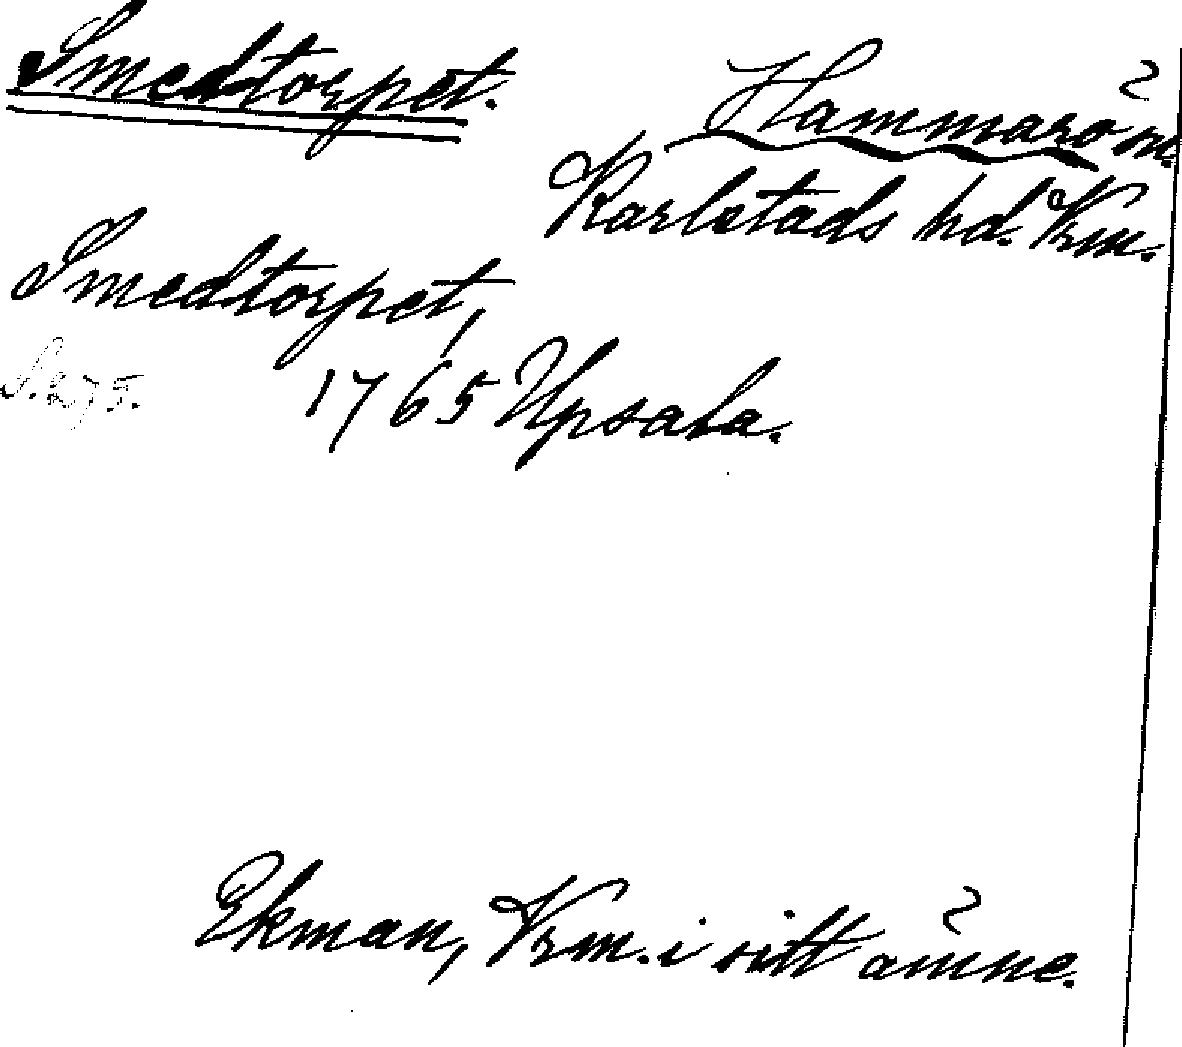 Smedtorpet.
Hammarö sn.
Karlstads hd. Vrm.
Smedtorpet,
S. 275.
1765 Upsala.
Ekman, Vrm. i sitt ämne.